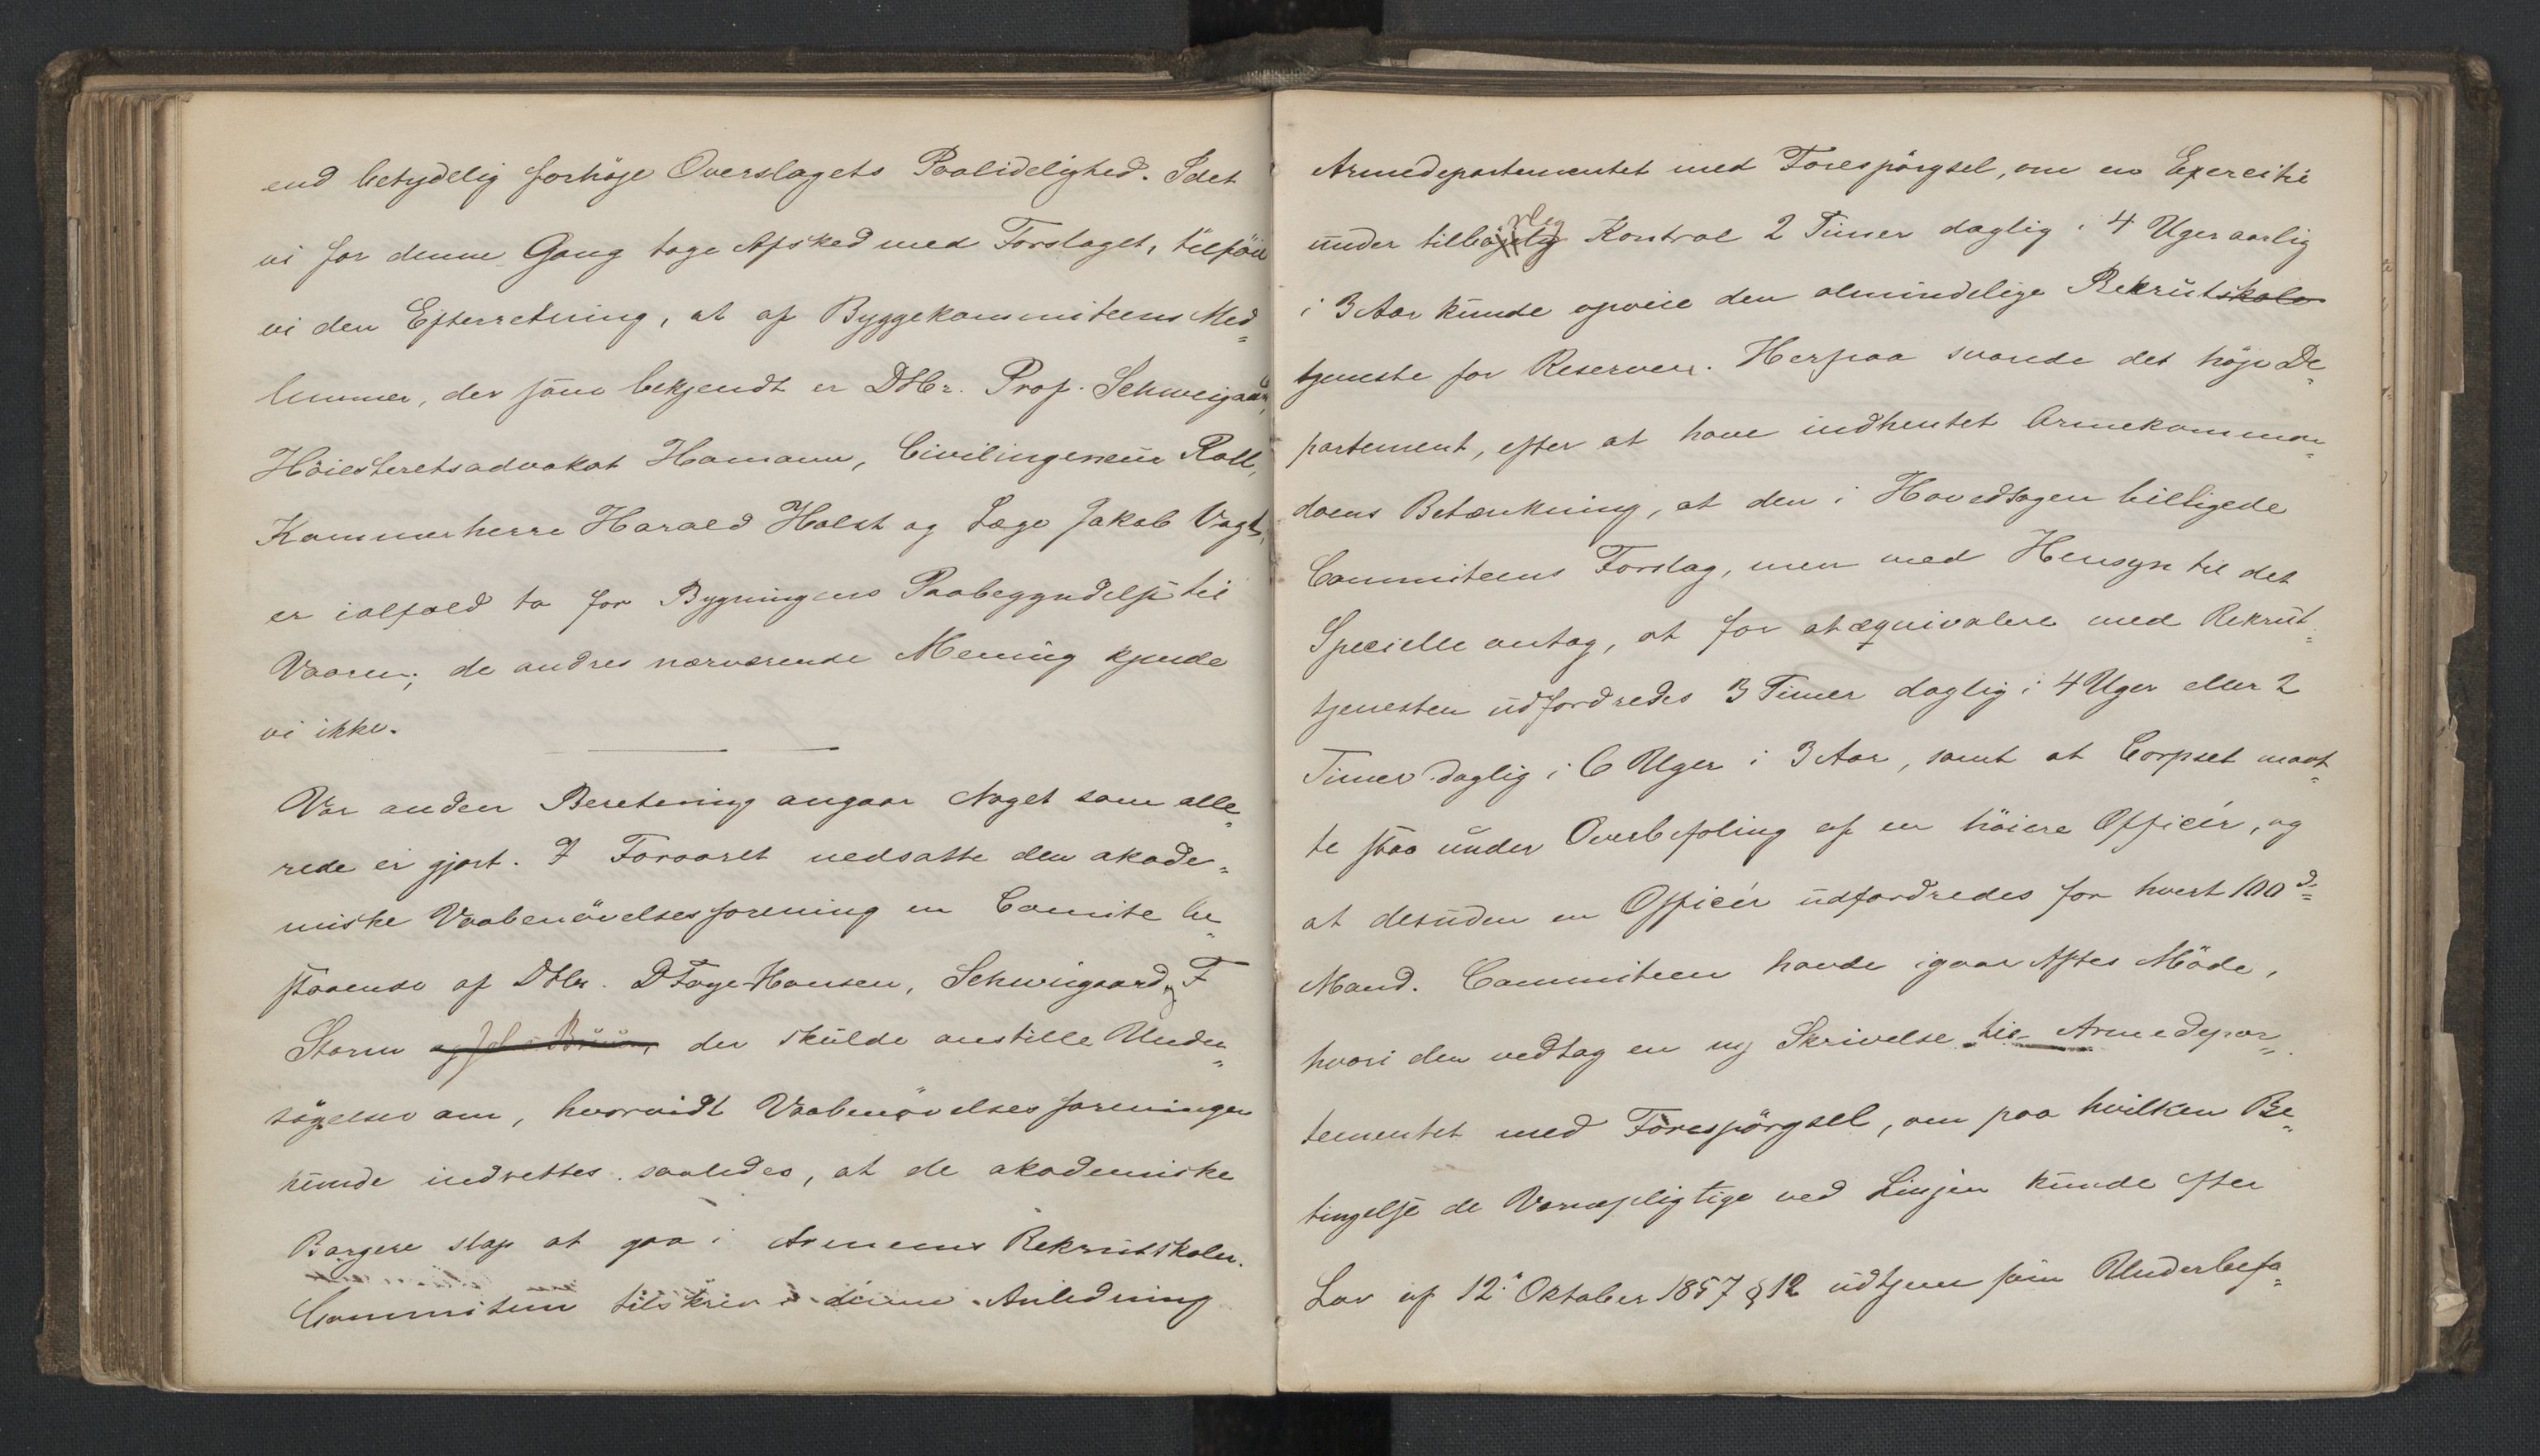 end betydelig forhöje Overslagets Paalidelighed. Idet
vi for denne Gang tage Afsked med Forslaget, tilföie
vi den Efterretning, at af Byggekommiteens Med=
lemmer, der som bekjendt er DHr. Prof. Schweigaard,
Höiesteretsadvokat Hamann, Civilingeneur Roll,
Kammerherre Harald Holst og Læge Jakob Vogt,
er ialfald to for Bygningens Paabegyndelse til
Vaaren; de andres nærværende Mening kjende
vi ikke.
Vor anden Beretning angaar Noget som alle=
rede er gjort. I Foraaret nedsatte den akade=
miske Vaabenövelsesforening en Comite be=
staaende af DHr. D Faye-Hansen, Schweigaard, og F
Storm og Joh. Bruun, der skulde anstille Under=
sögelser om, hvorvidt Vaabenövelsesforeningen
kunde indrettes saaledes, at de akademiske
Borgere slap at gaa i Armeens Rekrutskoler.
Commiteen tilskrev i denne Anledning
Armedepartementet med Forespörgsel, om en Exercitie
under tilbörlig Kontrol 2 Timer daglig i 4 Uger aarlig
i 3 Aar kunde opveie den almindelige Rekrutskole
tjeneste for Reserven. Herpaa svarede det höje De=
partement, efter at have indhentet Armekomman=
doens Betænkning, at den i Hovedsagen billigede
Commiteens Forslag, men med Hensyn til det
Specielle antog, at for at æquivalere med Rekrut=
tjenesten udfordredes 3 Timer daglig i 4 Uger eller 2
Timer daglig i 6 Uger i 3 Aar, samt at Corpset maat=
te staa under Overbefaling af en höiere Officér, og
at desuden en Officér udfordredes for hvert 100de
Mand. Commiteen havde igaar Aftes Möde,
hvori den vedtog en ny Skrivelse til Armedepar=
tementet med Forespörgsel, om paa hvilken Be=
tingelse de Vernepligtige ved Linjen kunde efter
Lov af 12. Oktober 1857 § 12 udtjene som Underbefa=